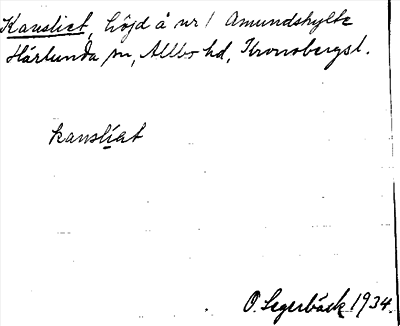 Kansliet, höjd å nr 1 Amundshylte
Härlunda sn, Allbo hd, Kronobergsl.
kansliet
O. Segerbäck 1934.